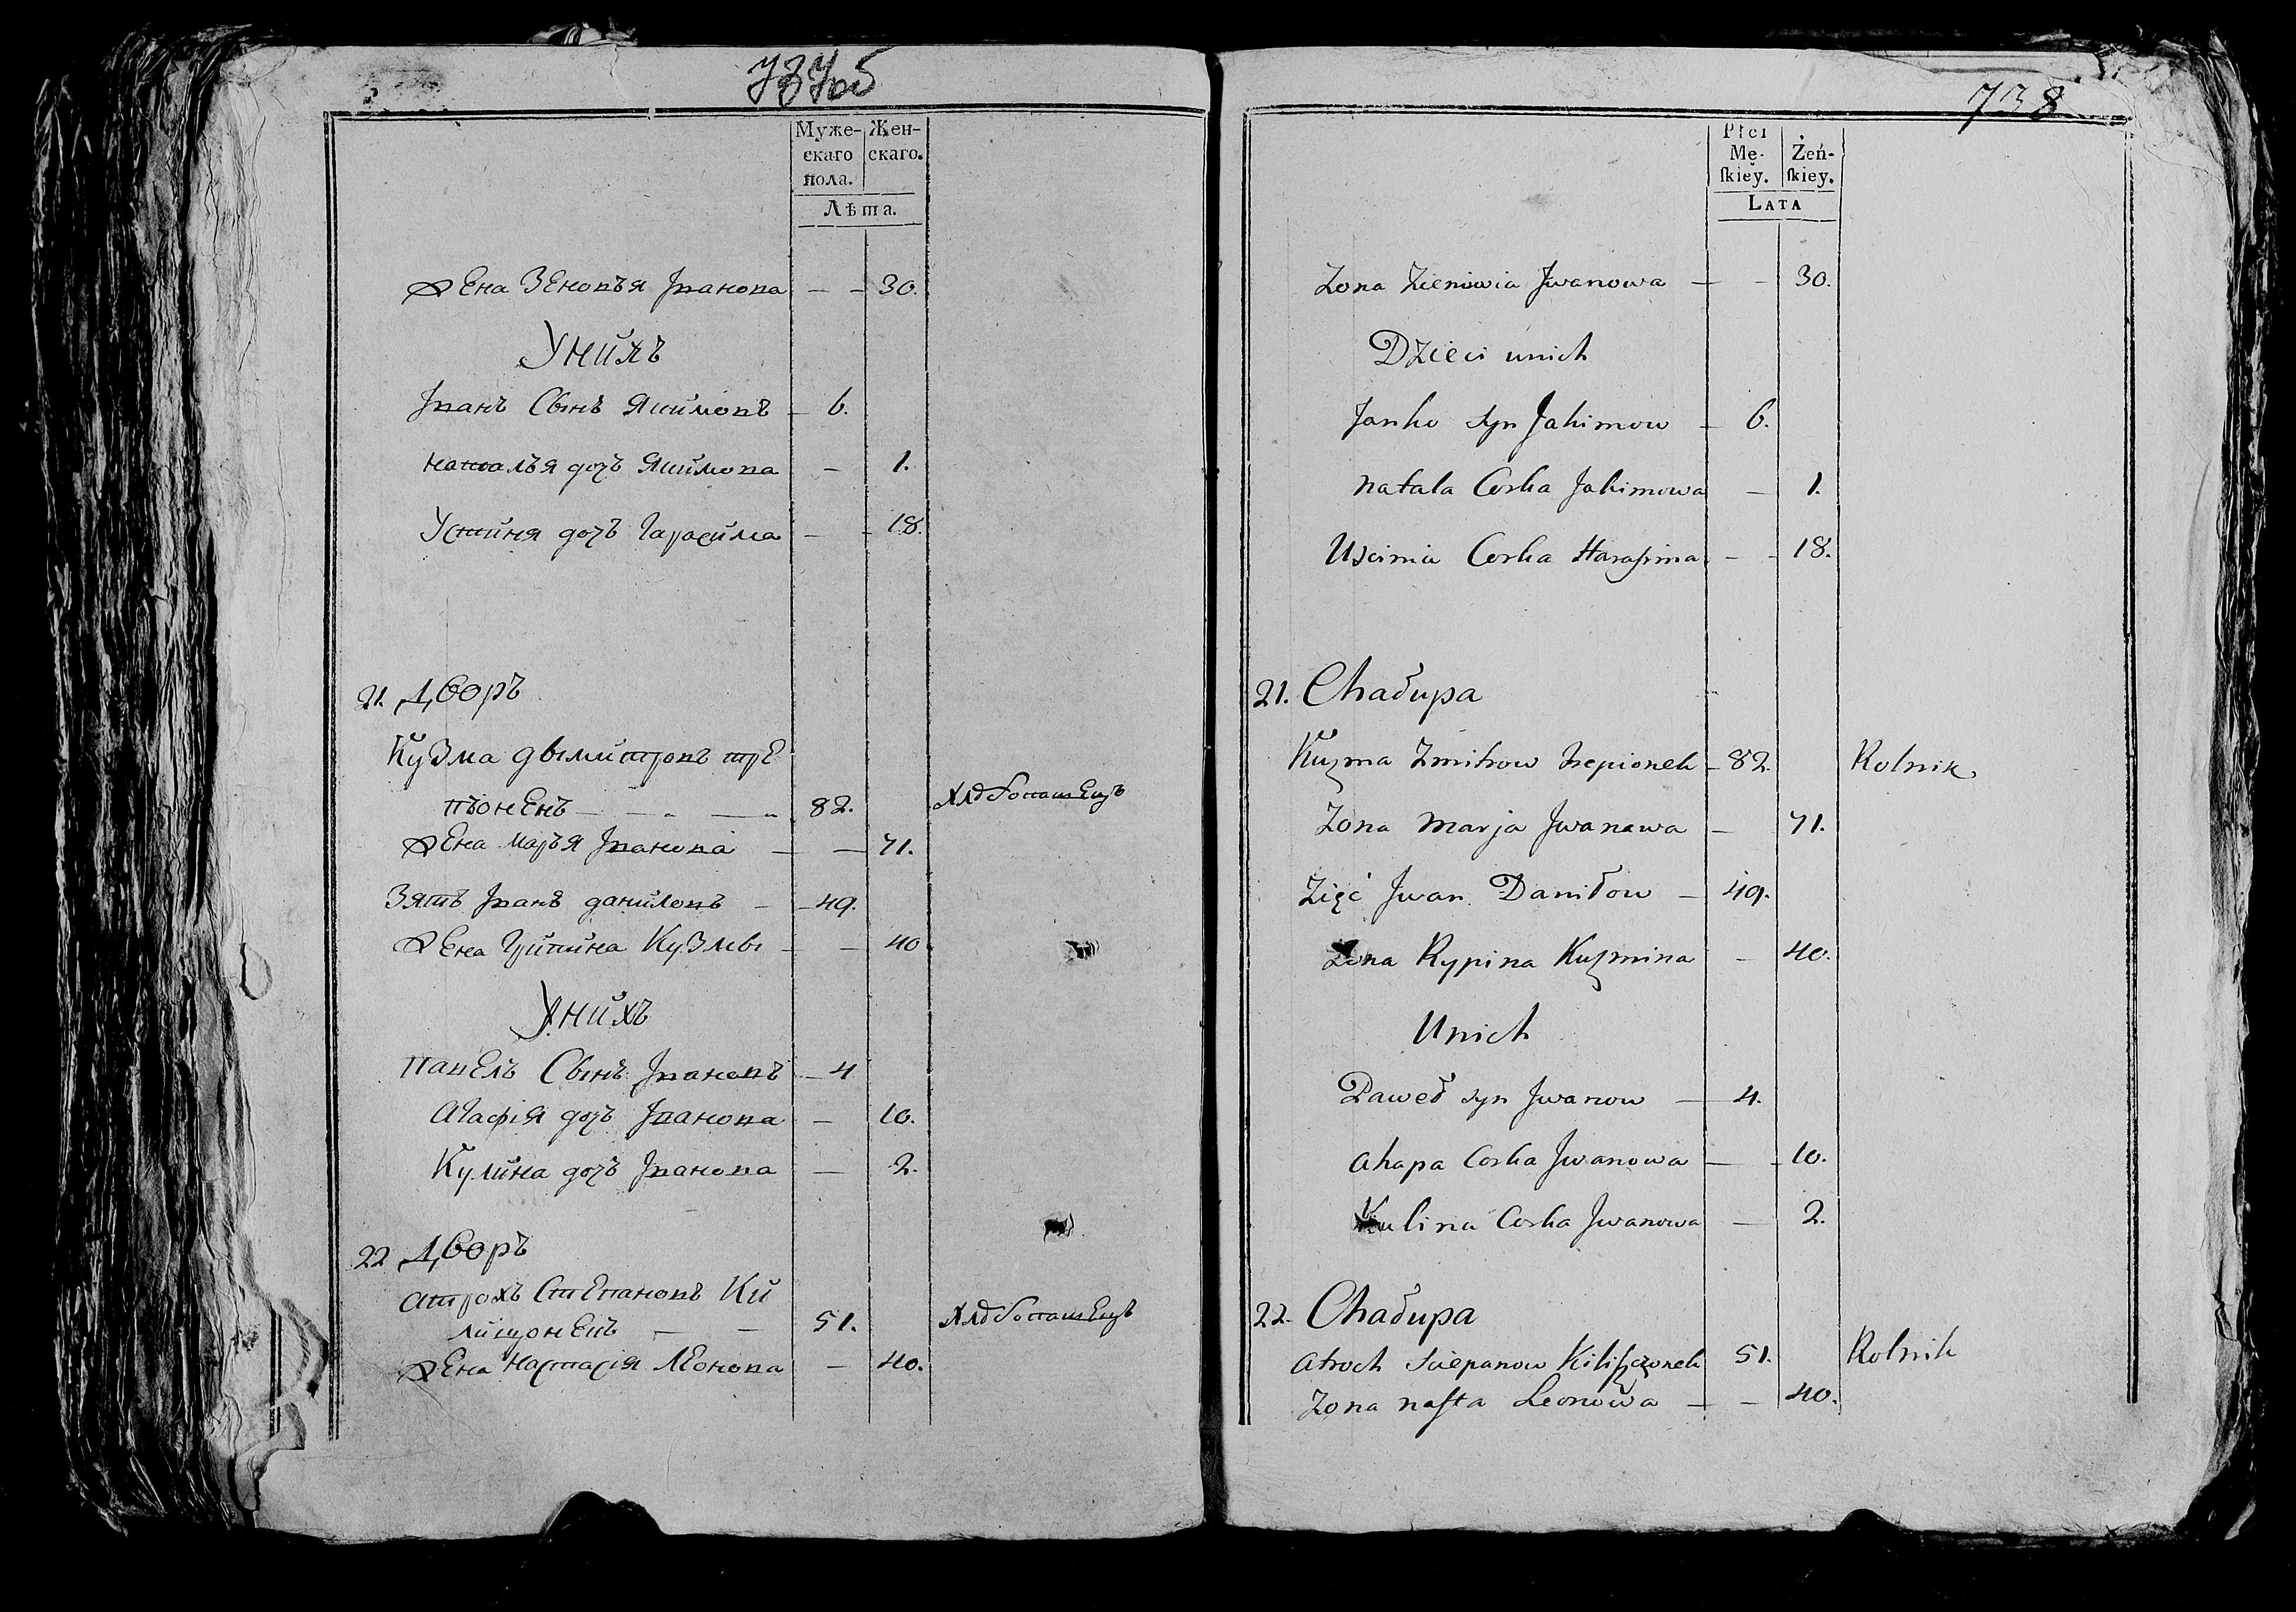 737об
Муже- Жен-
скаго скаго.
пола.
Лѣта.
Жена Зеновья Јванова — — 30.
У нихъ
Јванъ Сынъ Якимовъ — 6.
Наталья дочъ Якимова — 1.
Устиня дочъ Гарасима — — 18.
21. Дворъ
Кузма дымитровъ тре
пѣонекъ — — — 82. Хлебопашецъ
Жена Марья Јванова — — 71.
Зять Јванъ даниловъ — — 49.
Жена Грипина Кузмы — — 40
У нихъ
Павелъ Сынъ Јвановъ — 4
Агафія дочъ Јванова — 10.
Кулина дочъ Јванова — 2.
22 Дворъ
Атрохъ Степановъ Ки
лищонекъ — — 51. Хлебопашецъ
Жена Настасія Леонова — 40.
738
Płci
Mę- Żeń-
skiey. skiey.
LATA
Zona Zienowia Jwanowa — — 30.
Dzieci unich
Janko syn Jakimow — 6.
Natala Corka Jakimowa — 1.
Uscinia Corka Harasima — — 18.
21. Chałupa
Kuzma Zmitrow Trepionek — 82. Rolnik
Zona Marja Jwanawa — 71.
Zięć Jwan Daniłow — 49.
Zona Rypina Kuzmina — 40.
Unich
Paweł syn Jwanow — 4.
Ahapa Corka Jwanowa — — 10.
Kulina Corka Jwanowa — 2.
22. Chałupa
Atroch Sciepanow Kiliszczonek 51. Rolnik
Zona Nasta Leonowa — — 40.